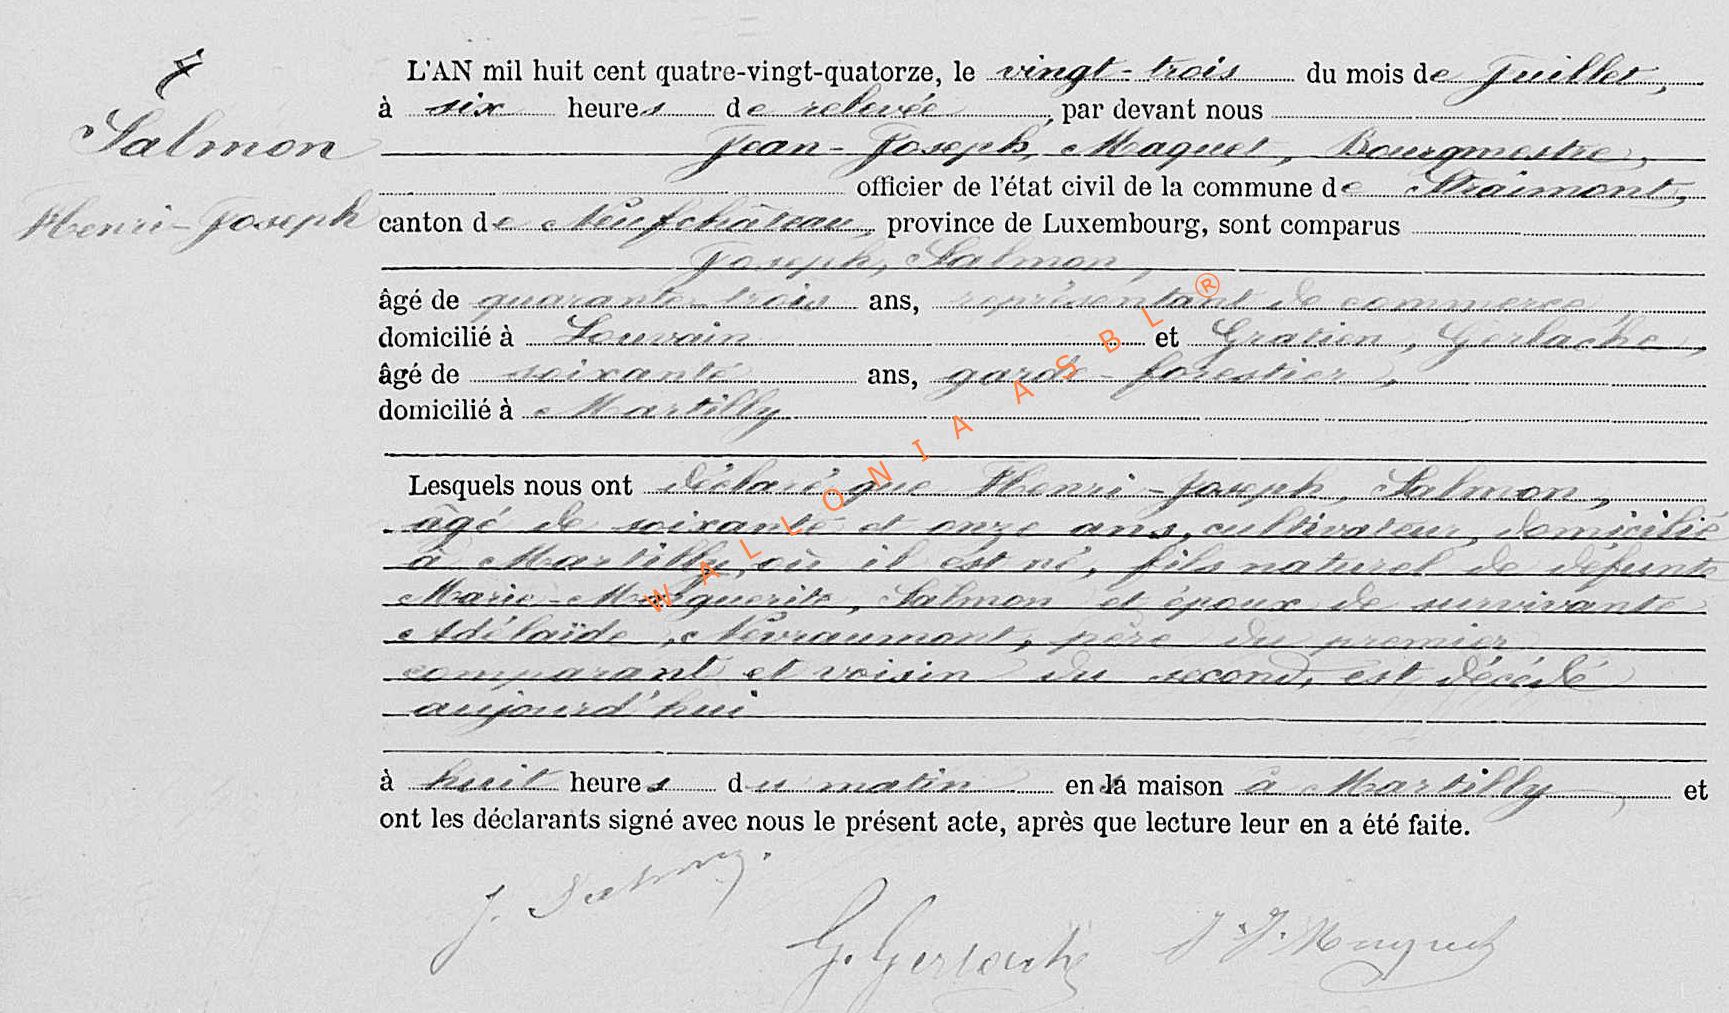 Salmon
Henri-Joseph
L'AN mil huit cent quatre-vingt-quatorze, le vingt-trois du mois de Juillet,
à six heures de relevée, par devant nous
Jean-Joseph, Maquet, Bourgmestre,
officier de l'état civil de la commune de Straimont,
canton de Neufchâteau, province de Luxembourg, sont comparus
Joseph, Salmon,
âgé de quarante trois ans, représentant de commerce
domicilié à Louvain et Gratien, Gerlache,
âgé de soixante ans, garde-forestier,
domicilié à Martilly
Lesquels nous ont déclaré que Henri-Joseph, Salmon,
âgé de soixante et onze ans, cultivateur, domicilié
à Martilly, où il est né, fils naturel de défunte
Marie-Marguerite, Salmon et époux de survivante
Adélaïde, Nevraumont, père du premier
comparant et voisin du second, est décédé
aujourd'hui
à huit heures du matin en la maison à Martilly, et
ont les déclarants signé avec nous le présent acte, après que lecture leur en a été faite.
J. Salmon
G. Gerlache J. J. Maquet
WALLONIA ASBL ®